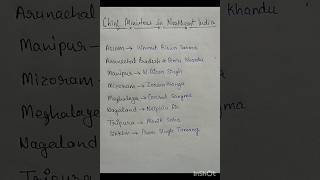 Chief Ministers in Northeast India
Assam → Himant Biswa Sarma
Arunachal Pradesh → Pema Khandu
Manipur → N. Biren Singh
Mizoram → Zoramthanga
Meghalaya → Conrad Sangma
Nagaland → Neiphiu Rio
Tripura → Manik Saha
Sikkim → Prem Singh Tamang
Arunachal
Manipur
Mizoram
Meghalaya
Nagaland
Tripura
Khandu
InShOt